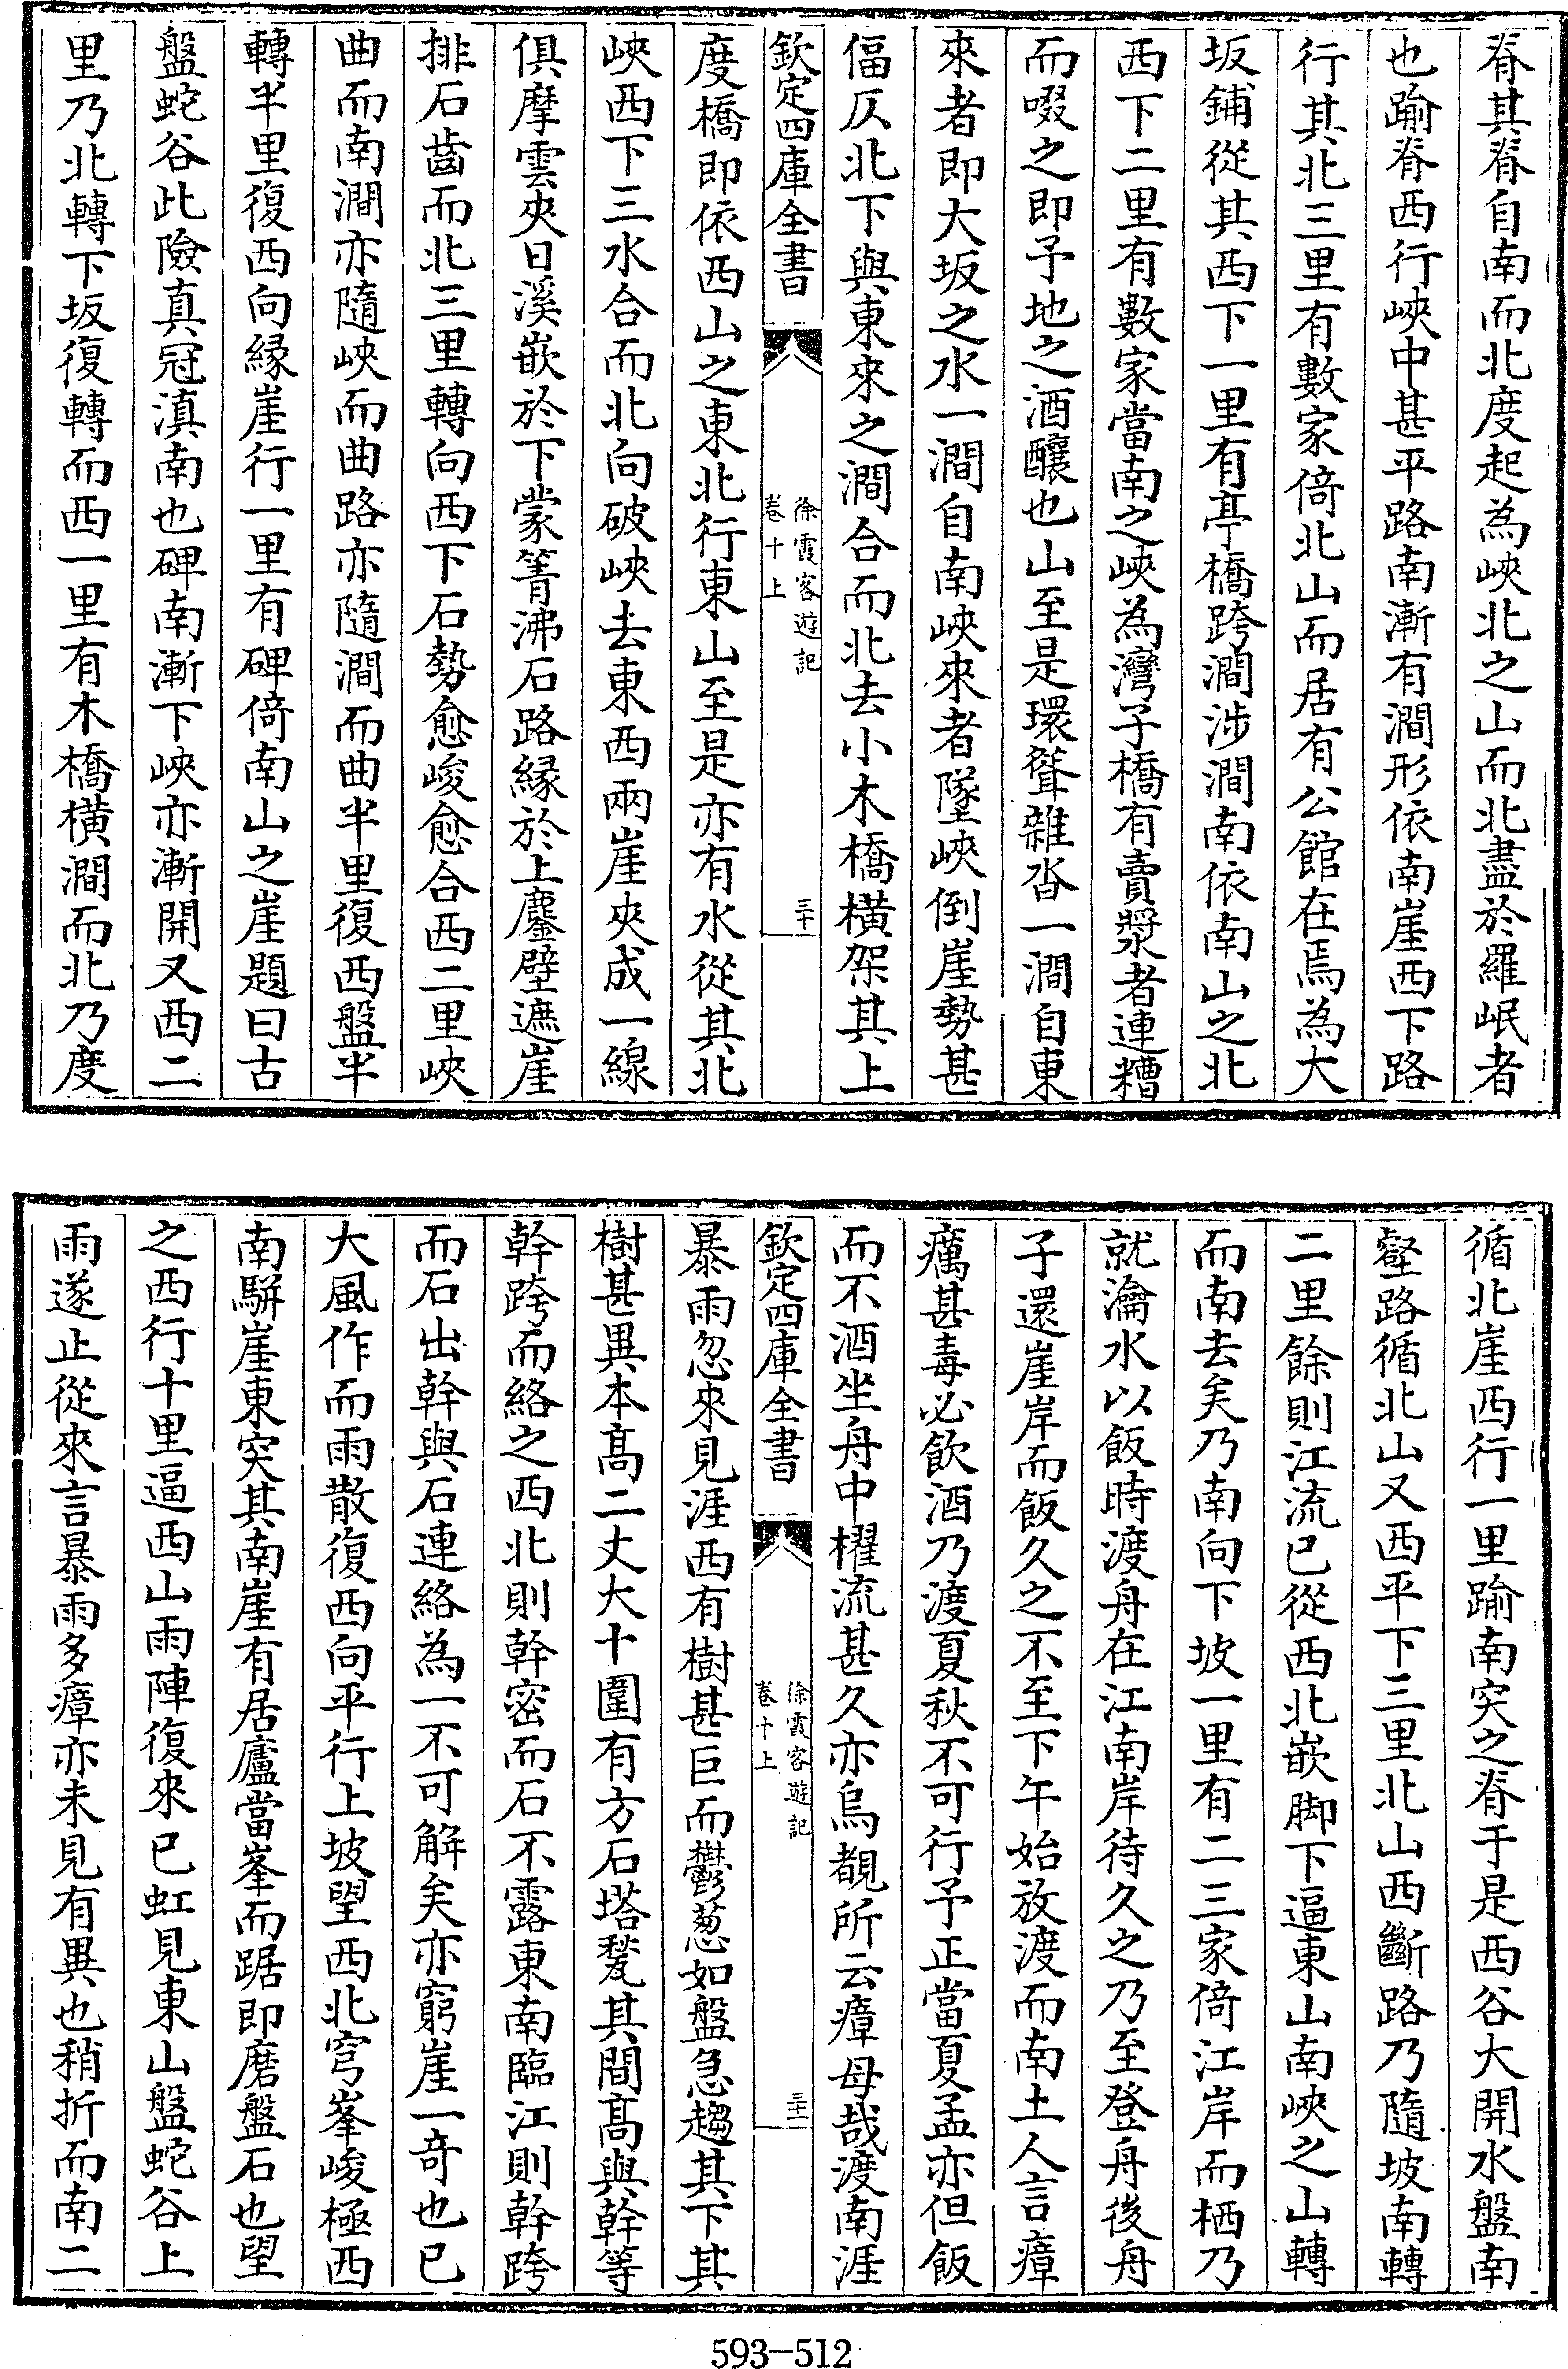 脊其脊自南而北度起為峽北之山而北盡於羅岷者
也踰脊西行峽中甚平路南漸有澗形依南崖西下路
行其北三里有數家倚北山而居有公館在焉為大
坂鋪從其西下一里有亭橋跨澗涉澗南依南山之北
西下二里有數家當南之峽為灣子橋有賣漿者連糟
而啜之即予地之酒釀也山至是環聳雜沓一澗自東
來者即大坂之水一澗自南峽來者墜峽倒崖勢甚
偪仄北下與東來之澗合而北去小木橋橫架其上
欽定四庫全書
徐霞客遊記
卷十上
三十
度橋即依西山之東北行東山至是亦有水從其北
峽西下三水合而北向破峽去東西兩崖夾成一線
俱摩雲夾日溪嵌於下蒙箐沸石路緣於上鏖壁遮崖
排石齒而北三里轉向西下石勢愈峻愈合西二里峽
曲而南澗亦隨峽而曲路亦隨澗而曲半里復西盤半
轉半里復西向緣崖行一里有碑倚南山之崖題曰古
盤蛇谷此險真冠滇南也碑南漸下峽亦漸開又西二
里乃北轉下坂復轉而西一里有木橋橫澗而北乃度
循北崖西行一里踰南突之脊于是西谷大開水盤南
壑路循北山又西平下三里北山西斷路乃隨坡南轉
二里餘則江流已從西北嵌脚下逼東山南峽之山轉
而南去矣乃南向下坡一里有二三家倚江岸而栖乃
就瀹水以飯時渡舟在江南岸待久之乃至登舟後舟
子還崖岸而飯久之不至下午始放渡而南土人言瘴
癘甚毒必飲酒乃渡夏秋不可行予正當夏孟亦但飯
而不酒坐舟中櫂流甚久亦烏覩所云瘴母哉渡南涯
欽定四庫全書
徐霞客遊記
卷十上
三十一
暴雨忽來見涯西有樹甚巨而鬱葱如盤急趨其下其
樹甚異本高二丈大十圍有方石塔甃其間高與幹等
幹跨而絡之西北則幹密而石不露東南臨江則幹跨
而石出幹與石連絡為一不可解矣亦窮崖一奇也已
大風作而雨散復西向平行上坡望西北穹峯峻極西
南駢崖東突其南崖有居廬當峯而踞即磨盤石也望
之西行十里逼西山雨陣復來已虹見東山盤蛇谷上
雨遂止從來言暴雨多瘴亦未見有異也稍折而南二
593-512